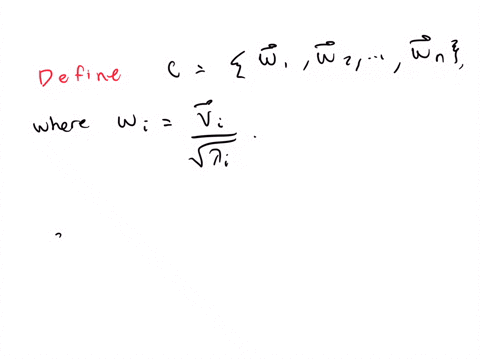 Define C = { w⃗₁, w⃗₂, ..., w⃗ₙ },
where wᵢ = v⃗ᵢ / √λᵢ .